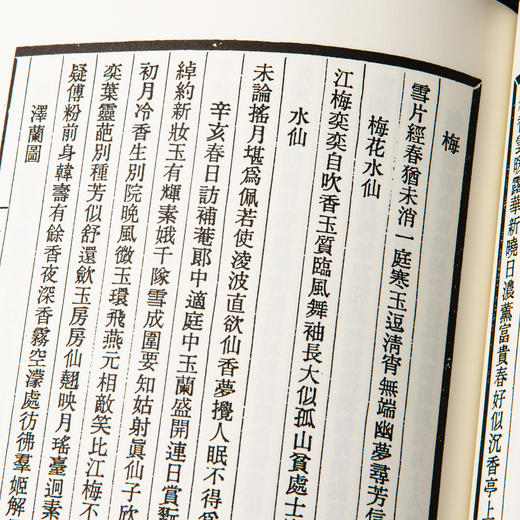 梅
雪片經春猶未消一庭寒玉逗淸宵無端幽夢尋芳信
梅花水仙
江梅奕奕自吹香玉質臨風舞袖長大似孤山貧處士
水仙
未論搖月堪爲佩若使淩波直欲仙香夢攪人眠不得
辛亥春日訪補菴郎中適庭中玉蘭盛開連日賞翫
綽約新妝玉有輝素娥千隊雪成圍要知姑射眞仙子欣
初月冷香生別院晚風微玉環飛燕元相敵笑比江梅不
奕葉靈葩別種芳似舒還歛玉房房仙翹映月瑤臺迥素
疑傅粉前身韓壽有餘香夜深香霧空濛處彷彿羣姬解
澤蘭圖
雲晚露華新曉日濃薰富貴春好似沉香亭上